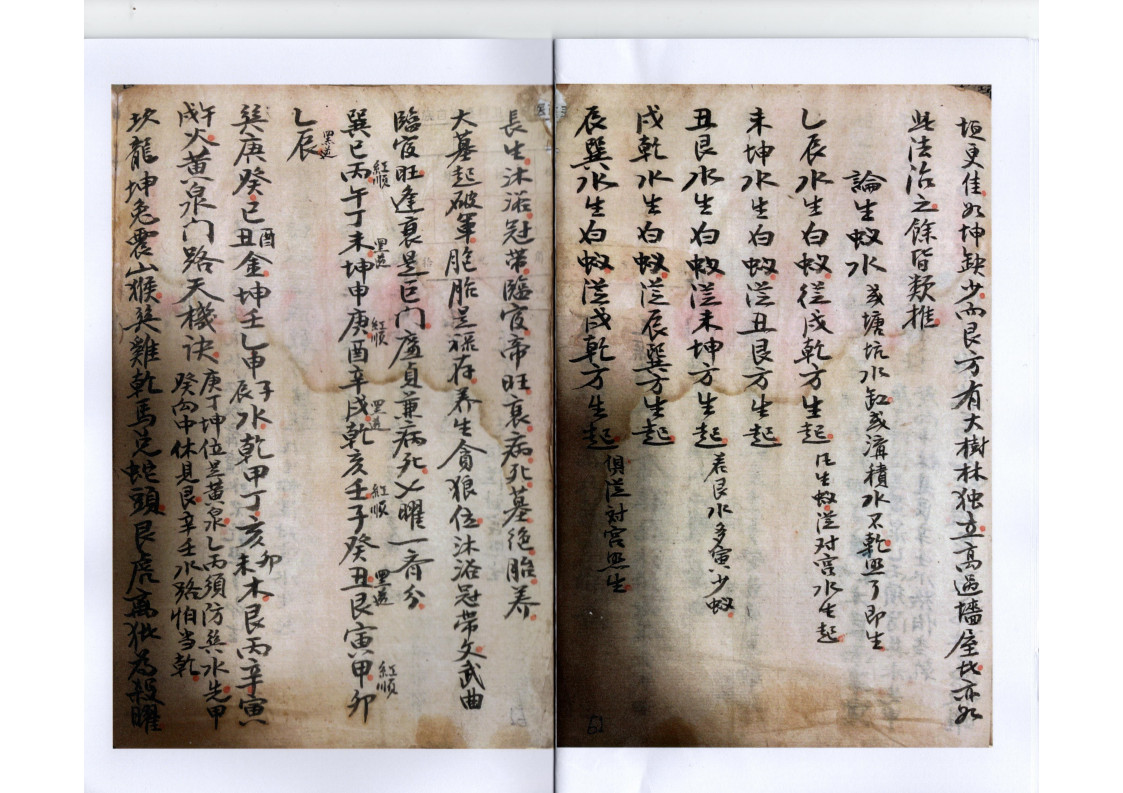 垣更佳如坤缺少而艮方有大樹林独立高过墻屋此亦如
此法治之餘皆類推
論生蚁水 或塘坑水缸或濟積水不乾照了即生
乙辰水生白蚁從戌乾方生起 生蚁從对宫水生起
未坤水生白蚁從丑艮方生起
丑艮水生白蚁從未坤方生起 若艮水多寅少蚁
戌乾水生白蚁從辰巽方生起
辰巽水生白蚁從戌乾方生起 俱從对宫照生
62
長生沐浴冠带臨官帝旺衰病死墓绝胎养
大墓起破軍胞胎是禄存养生貪狼位沐浴冠带文武曲
臨官旺逢衰是巨门廉貞兼病死七曜一齐分
巽巳丙 紅順 午丁未 黑逆 坤申庚 紅順 酉辛戌 黑逆 乾亥壬 紅順 子癸丑 黑逆 艮寅甲 紅順 卯
乙辰 黑逆
巽庚癸巳酉丑金坤壬乙申子辰水乾甲丁亥卯未木艮丙辛寅
午戌火黄泉门路天機诀 庚丁坤位是黄泉乙丙須防巽水先甲
癸向中休見艮辛壬水路怕当乾
坎龍坤兔震山猴巽雞乾馬兑蛇頭艮虎离猪為殺曜